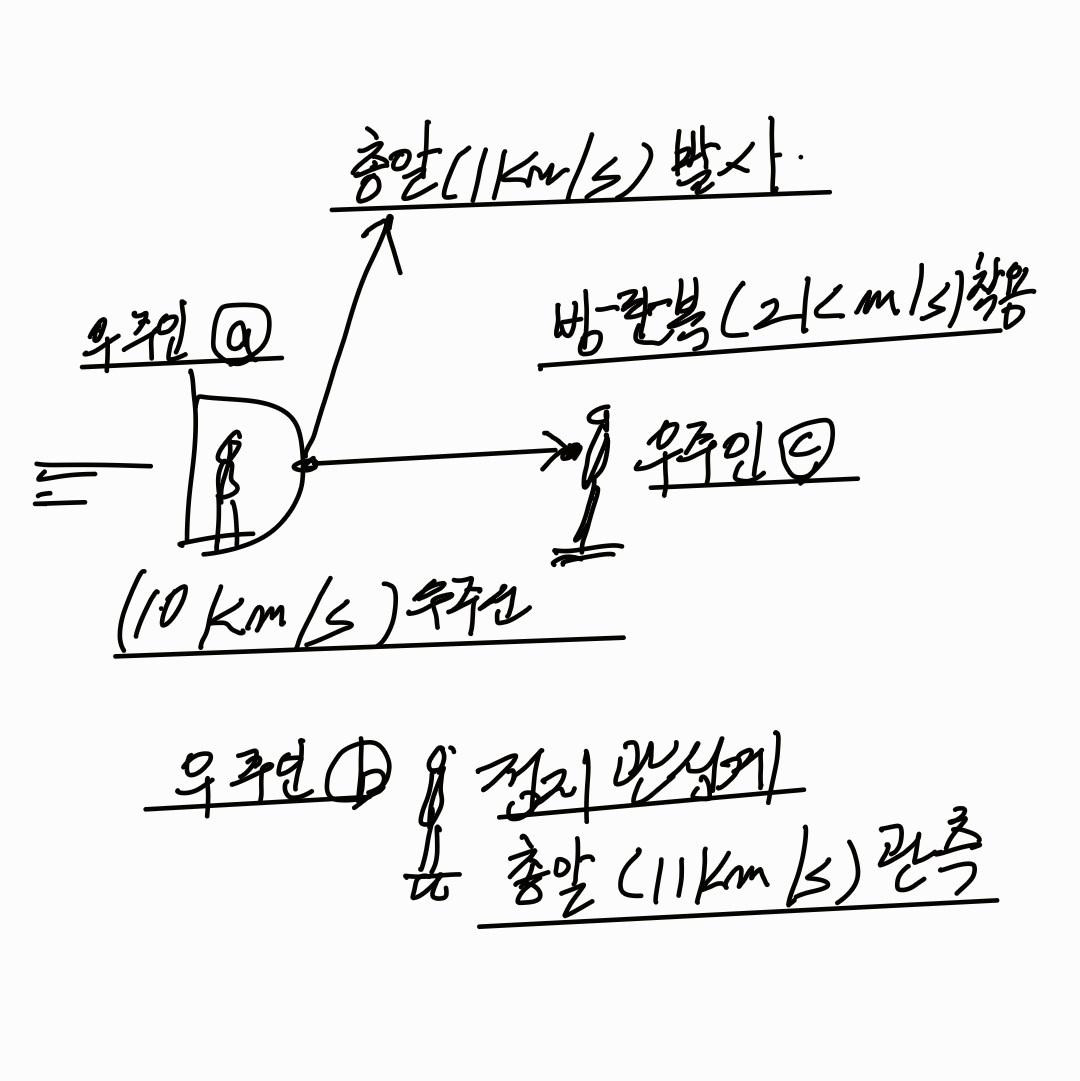 총알(1km/s) 발사.
방탄복(2km/s)착용
우주인 ⓐ
우주인 ⓒ
(10 km/s)우주선
우주인 ⓑ 정지 관성계
총알(11km/s) 관측